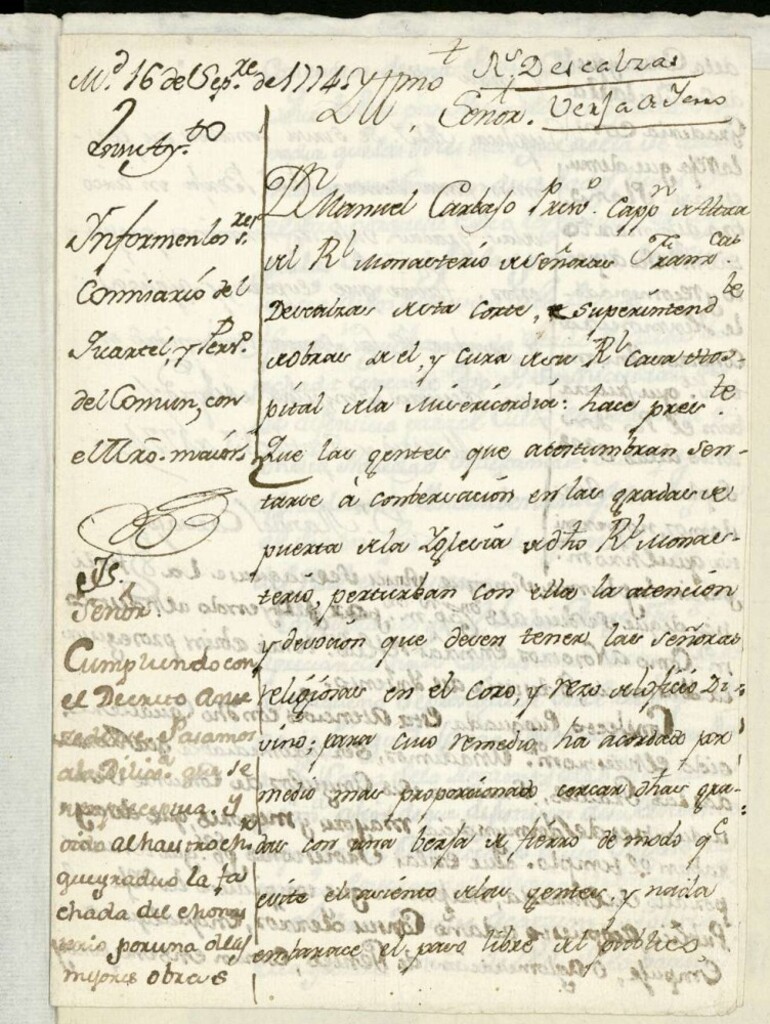 M.d 16 del Sep.re de 1774.
Yllmo
Señor.
Rs Descalzas
Verja de Yerro
En Ayt.to
Informen los Sres
Comisario del
Quartel, y Pers.o
del Comun, con
el Mro. maior
S.
Señor.
Cumpliendo con
el Decreto ante
zedente Pasamos
a la Dilig.a que se
nos y
oido al
que graduo la fa
chada del Monas
terio por una de las
mejores obras
Dn Manuel Carbajo Presv.o Capp.n de Altar
del Rl Monasterio de Señoras Franc.cas
Descalzas de esta Corte, Superintend.te
de obras de el, y cura de su Rl Casa Hos-
pital de la Misericordia: hace pres.te
Que las gentes que acostumbran sen-
tarse à conversación en las gradas de
puerta de la Yglesia de dho Rl Monas-
terio, perturban con ella la atención
y devoción que deven tener las señoras
religiosas en el coro, y rezo del oficio Di-
vino; para cuio remedio, ha acordado por
medio mas proporcionado cercar dhas gra-
das con una berja de fierro de modo q.e
evite el asiento de las gentes, y nada
embarace el paso libre del publico,